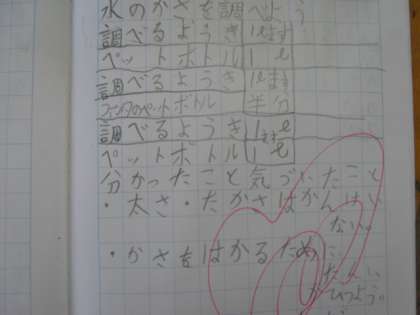 水のかさを調べよう
調べるようき 1lます
ペットボトル 1l
調べるようき 1lます
ファンタのペットボトル 半分
調べるようき 1lます
ペットボトル 1l
分かったこと気づいたこと
・太さ・たかさはかんけい
ない。
・かさをはかるために
たんい
がひつよう。